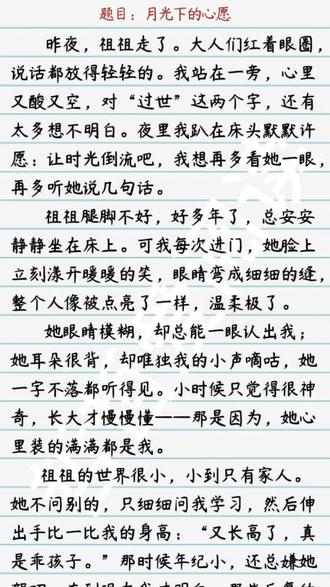 题目：月光下的心愿
昨夜，祖祖走了。大人们红着眼圈，
说话都放得轻轻的。我站在一旁，心里
又酸又空，对“过世”这两个字，还有
太多想不明白。夜里我趴在床头默默许
愿：让时光倒流吧，我想再多看她一眼，
再多听她说几句话。
祖祖腿脚不好，好多年了，总安安
静静坐在床上。可我每次进门，她脸上
立刻漾开暖暖的笑，眼睛弯成细细的缝，
整个人像被点亮了一样，温柔极了。
她眼睛模糊，却总能一眼认出我；
她耳朵很背，却唯独我的小声嘀咕，她
一字不落都听得见。小时候只觉得很神
奇，长大才慢慢懂——那是因为，她心
里装的满满都是我。
祖祖的世界很小，小到只有家人。
她不问别的，只细细问我学习，然后伸
出手比一比我的身高：“又长高了，真
是乖孩子。”那时候年纪小，还总嫌她